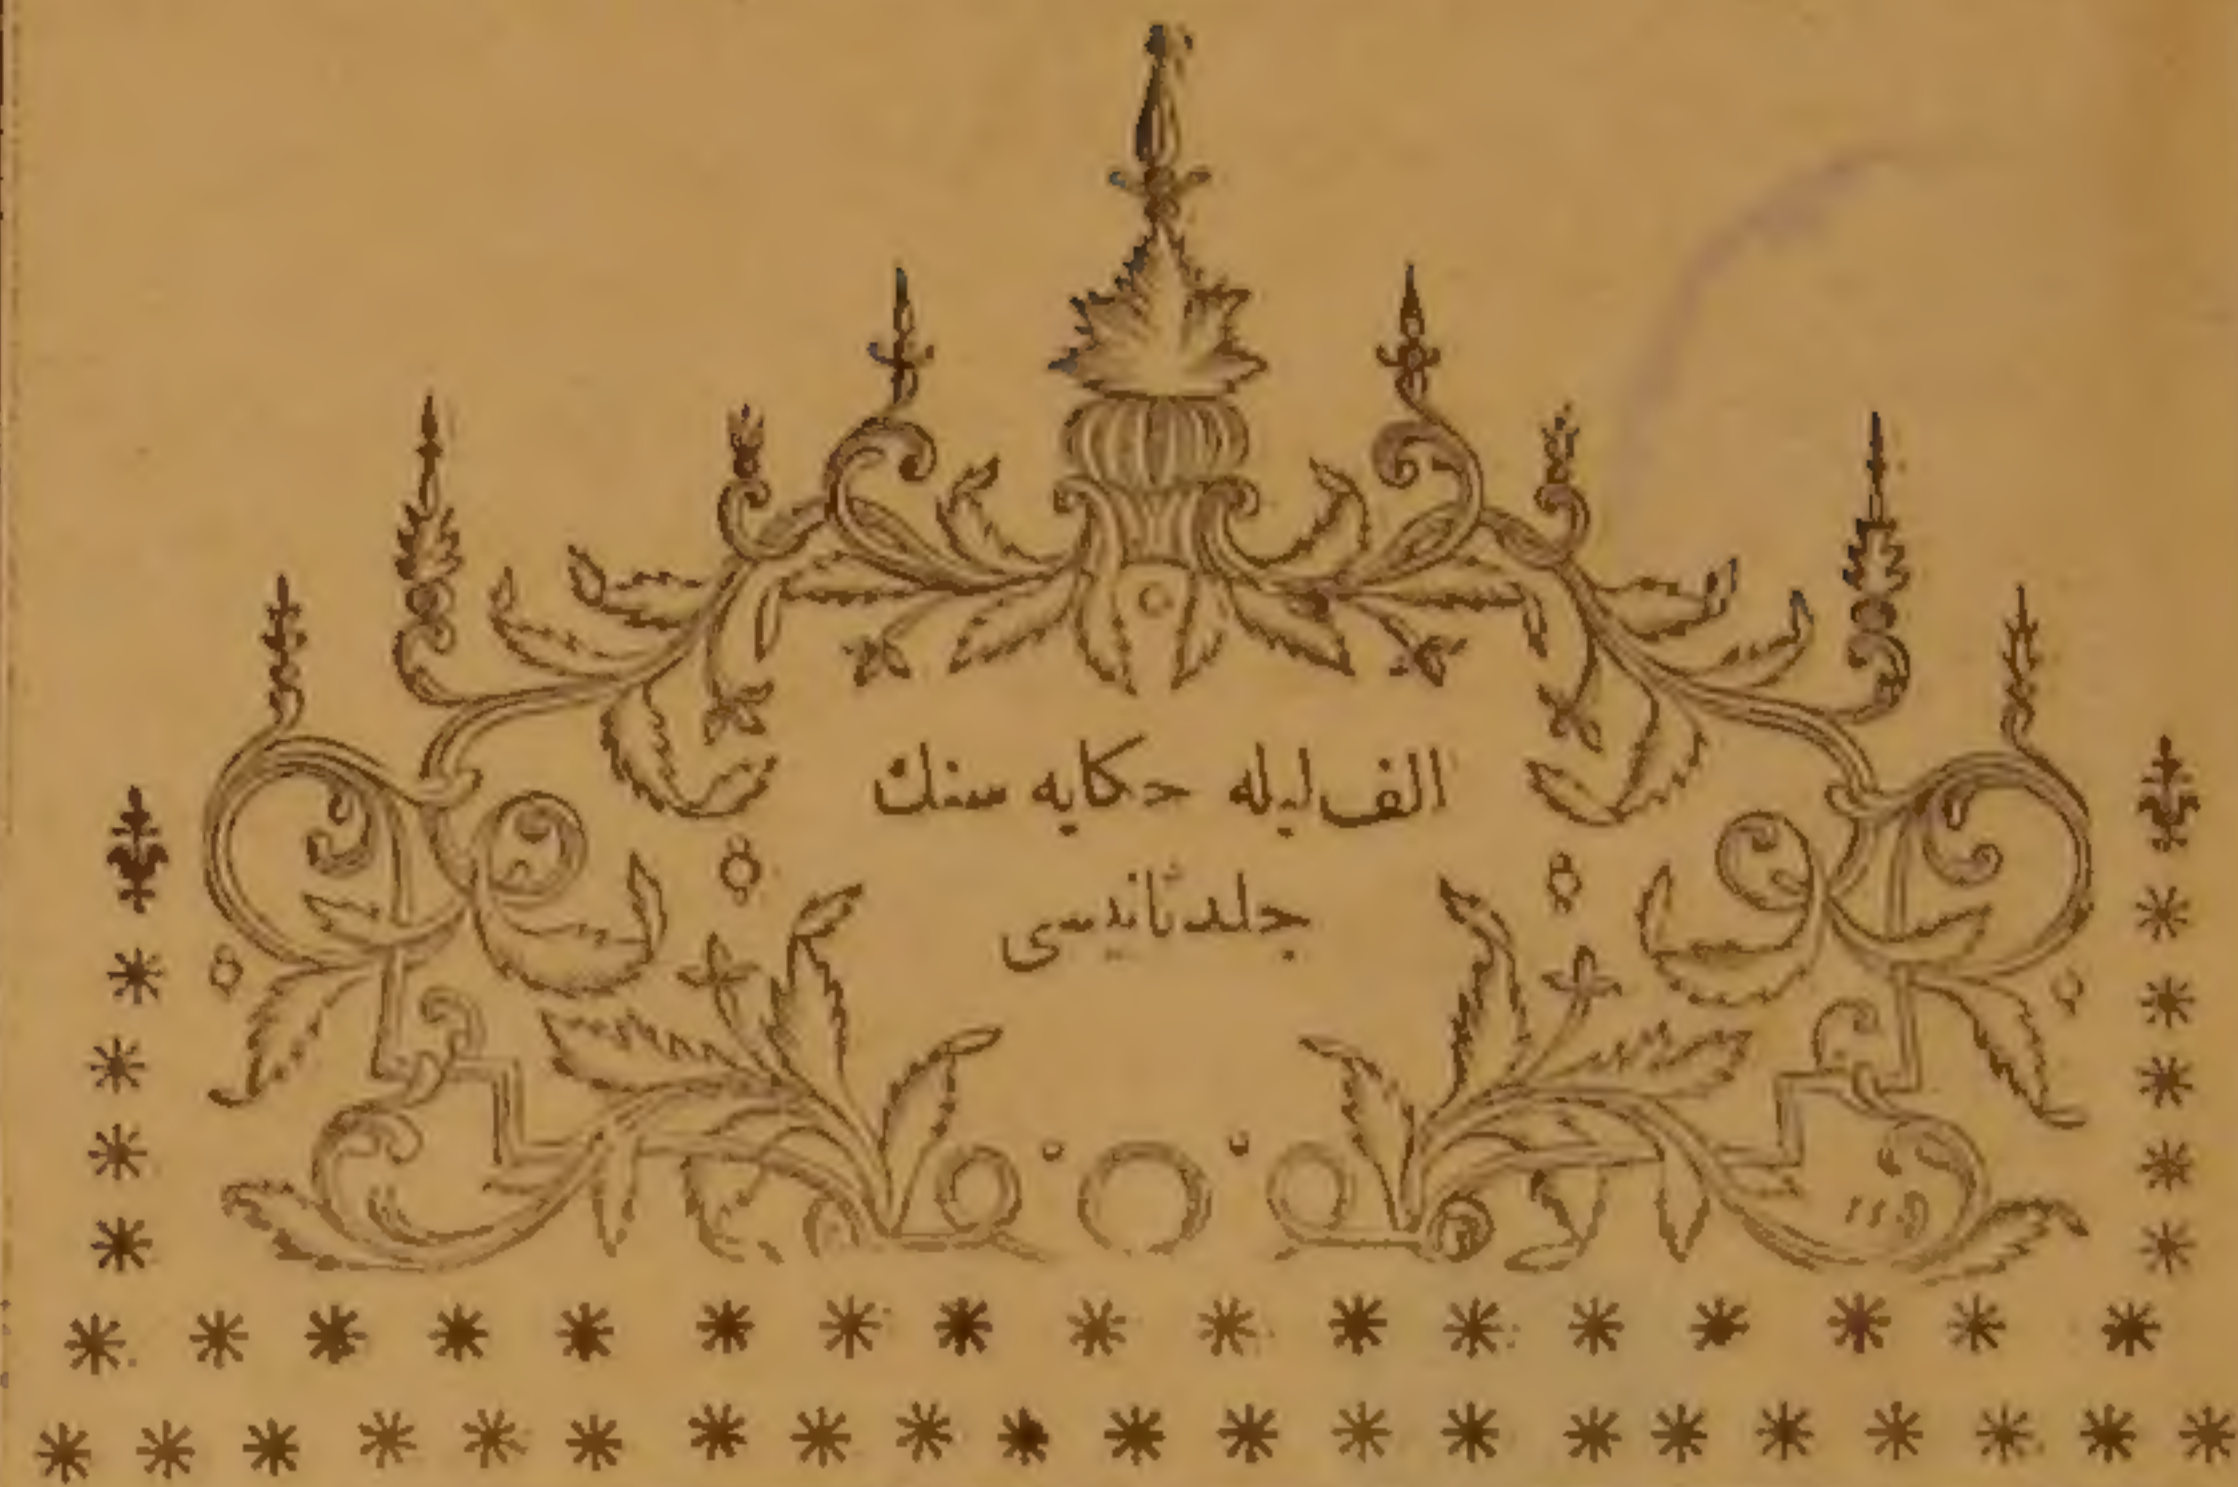 الف ليله حكايه سنك
جلد ثانيسى